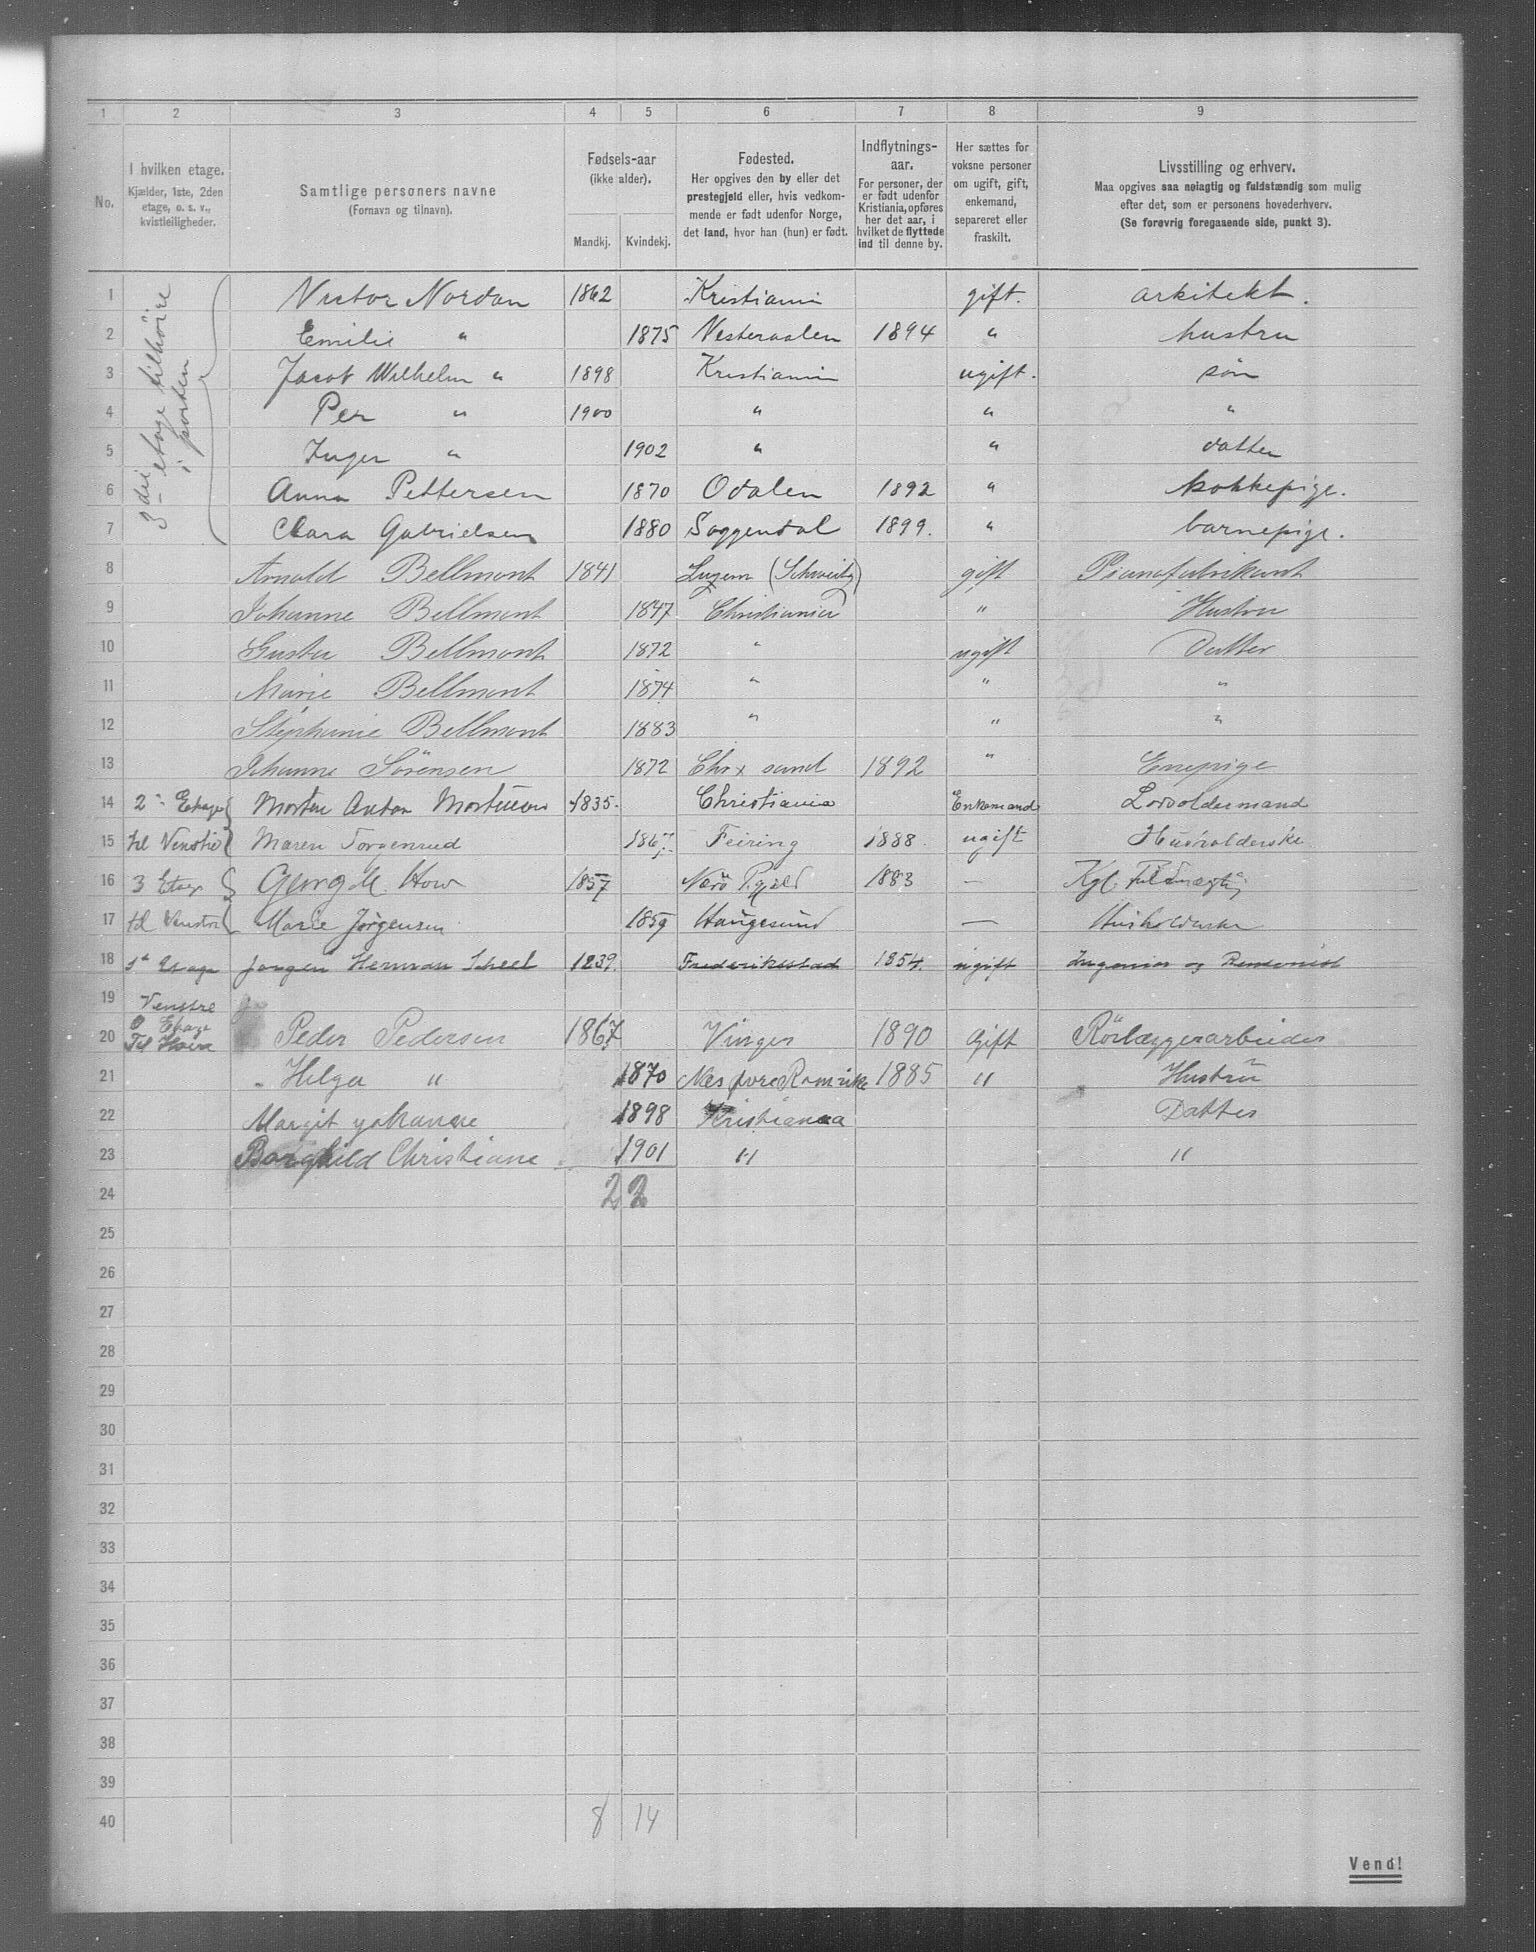 1 2 3 4 5 6 7 8 9
No.
I hvilken etage.
Kjælder, 1ste, 2den
etage, o. s. v.,
kvistleiligheder.
Samtlige personers navne
(Fornavn og tilnavn).
Fødsels-aar
(ikke alder).
Mandkj. Kvindekj.
Fødested.
Her opgives den by eller det
prestegjeld eller, hvis vedkom-
mende er født udenfor Norge,
det land, hvor han (hun) er født.
Indflytnings-
aar.
For personer, der
er født udenfor
Kristiania, opføres
her det aar, i
hvilket de flyttede
ind til denne by.
Her sættes for
voksne personer
om ugift, gift,
enkemand,
separeret eller
fraskilt.
Livsstilling og erhverv.
Maa opgives saa nøiagtig og fuldstændig som mulig
efter det, som er personens hovederhverv.
(Se forøvrig foregaaende side, punkt 3).
3die etage tilhøire
i porten
1 Victor Nordan 1862 Kristiania gift. arkitekt.
2 Emilie " 1875 Vesteraalen 1894 " hustru
3 Jacob Wilhelm " 1898 Kristiania ugift. søn
4 Per " 1900 " " "
5 Inger " 1902 " " datter
6 Anna Pettersen 1870 Odalen 1892 " kokkepige.
7 Clara Gabrielsen 1880 Soggendal 1899. " barnepige.
8 Arnold Bellmont 1841 Luzern (Schweitz) gift Pianofabrikant
9 Johanne Bellmont 1847 Christiania " Hustru
10 Gusta Bellmont 1872 " ugift Datter
11 Marie Bellmont 1874 " " "
12 Stephanie Bellmont 1883 " " "
13 Johanne Sörensen 1872 Chr. sand 1892 " Enepige
14 2 Etage Morten Anton Mortensen 1835. Christiania Enkemand
15 til Venstre Maren Torgenrud 1867. Feiring 1888. ugift Husholderske
16 3 Etage Georg M. How 1857 Nærö 1883 — Kgl. Fuldmægtig
17 til Venstre Marie Jørgensen 1859 Haugesund — Husholderske
18 1st Etage Jørgen Herman Scheel 1839. Frederiksstad 1854. ugift Ingeniør og
19 Venstre
O Etage
20 Til Høire Peder Pedersen 1867 Vinger 1890 Gift Rörlæggerarbeider
21 " Helga " 1870 Nes övre Romrike 1885 " Hustru
22 Margit Johanne 1898 Kristiania Datter
23 Borghild Christiane 1901 " "
24 22
25
26
27
28
29
30
31
32
33
34
35
36
37
38
39
40 8 14
Vend!